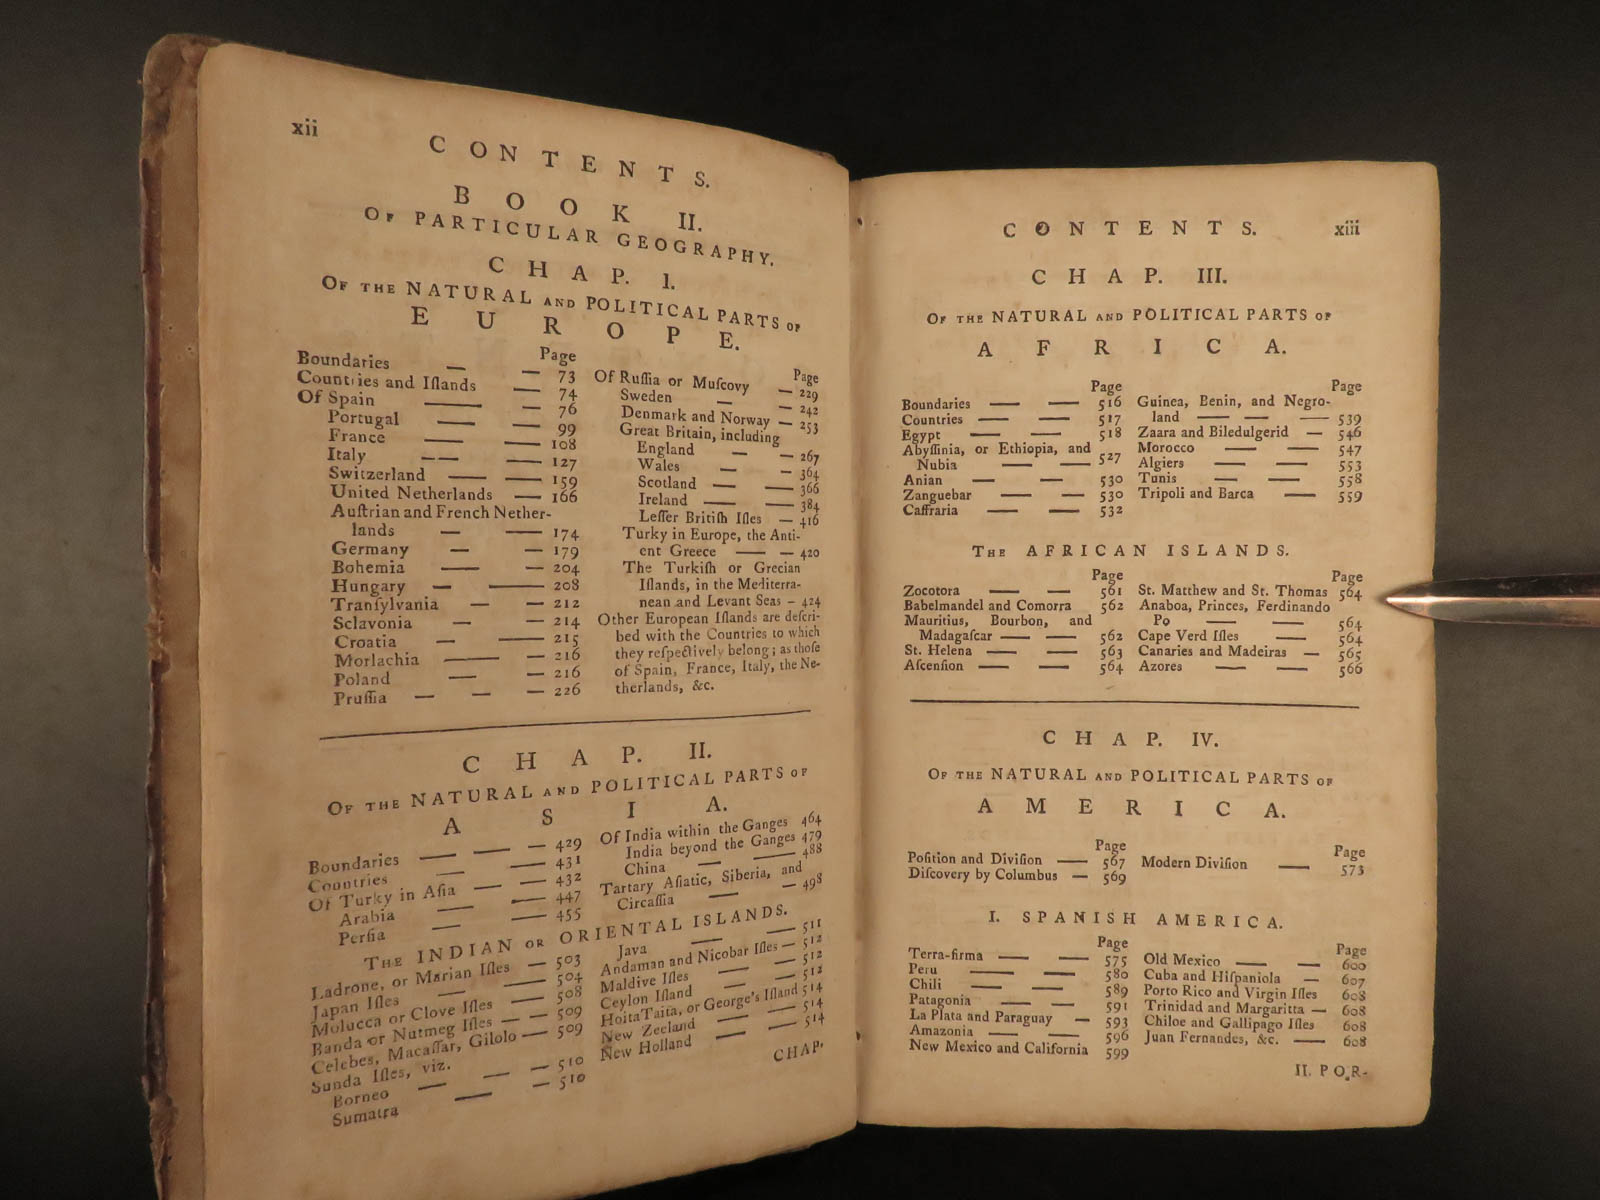 xii
CONTENTS.
BOOK II.
OF PARTICULAR GEOGRAPHY.
CHAP. I.
OF THE NATURAL AND POLITICAL PARTS OF
EUROPE.
Page
Boundaries — — 73
Countries and Iſlands — 74
Of Spain — — 76
Portugal — — 99
France — — 108
Italy — — 127
Switzerland — — 159
United Netherlands — 166
Auſtrian and French Nether-
lands — — 174
Germany — — 179
Bohemia — — 204
Hungary — — 208
Tranſylvania — — 212
Sclavonia — — 214
Croatia — — 215
Morlachia — — 216
Poland — — 216
Pruſſia — — — 226
Page
Of Ruſſia or Muſcovy — 229
Sweden — — 242
Denmark and Norway — 253
Great Britain, including
England — — 267
Wales — — 364
Scotland — — 366
Ireland — — 384
Leſſer Britiſh Iſles — 416
Turky in Europe, the Anti-
ent Greece — — 420
The Turkiſh or Grecian
Iſlands, in the Mediterra-
nean and Levant Seas – 424
Other European Iſlands are deſcri-
bed with the Countries to which
they reſpectively belong; as thoſe
of Spain, France, Italy, the Ne-
therlands, &c.
CHAP. II.
OF THE NATURAL AND POLITICAL PARTS OF
ASIA.
Boundaries — — — 429
Countries — 431
Of Turky in Aſia — — 432
Arabia — — 447
Perſia — — 455
Of India within the Ganges 464
India beyond the Ganges 479
China — — 488
Tartary Aſiatic, Siberia, and
Circaſſia — — 498
THE INDIAN OR ORIENTAL ISLANDS.
Ladrone, or Marian Iſles — 503
Japan Iſles — — 504
Molucca or Clove Iſles — 508
Banda or Nutmeg Iſles — — 509
Celebes, Macaſſar, Gilolo — 509
Sunda Iſles, viz.
Borneo — — — 510
Sumatra — — 510
Java — — 511
Andaman and Nicobar Iſles — 512
Maldive Iſles — — 512
Ceylon Iſland — — 512
HoitaTaita, or George's Iſland 514
New Zeeland — — 514
New Holland — — 514
CHAP.
CONTENTS. xiii
CHAP. III.
OF THE NATURAL AND POLITICAL PARTS OF
AFRICA.
Page
Boundaries — — 516
Countries — — 517
Egypt — — 518
Abyſſinia, or Ethiopia, and
Nubia — — 527
Anian — — 530
Zanguebar — — 530
Caffraria — — 532
Page
Guinea, Benin, and Negro-
land — — — 539
Zaara and Biledulgerid — 546
Morocco — — 547
Algiers — — 553
Tunis — — 558
Tripoli and Barca — 559
THE AFRICAN ISLANDS.
Page
Zocotora — — 561
Babelmandel and Comorra 562
Mauritius, Bourbon, and
Madagaſcar — — 562
St. Helena — — 563
Aſcenſion — — 564
Page
St. Matthew and St. Thomas 564
Anaboa, Princes, Ferdinando
Po — — 564
Cape Verd Iſles — 564
Canaries and Madeiras — 565
Azores — — 566
CHAP. IV.
OF THE NATURAL AND POLITICAL PARTS OF
AMERICA.
Page
Poſition and Diviſion — 567
Diſcovery by Columbus — 569
Page
Modern Diviſion — 573
I. SPANISH AMERICA.
Page
Terra-firma — — 575
Peru — — 580
Chili — — 589
Patagonia — — 591
La Plata and Paraguay — 593
Amazonia — — 596
New Mexico and California 599
Page
Old Mexico — — 600
Cuba and Hiſpaniola — 607
Porto Rico and Virgin Iſles 608
Trinidad and Margaritta — 608
Chiloe and Gallipago Iſles 608
Juan Fernandes, &c. — 608
II. POR-